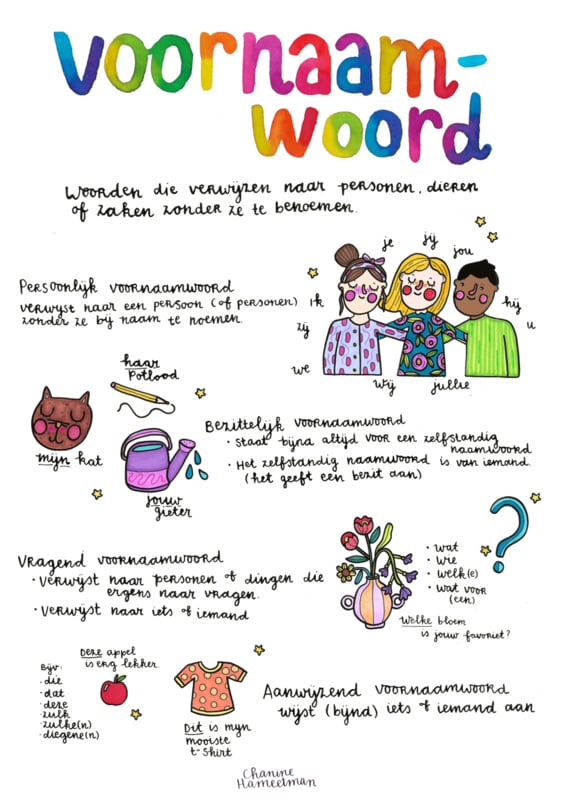 voornaam-
woord
Woorden die verwijzen naar personen, dieren
of zaken zonder ze te benoemen.
Persoonlijk voornaamwoord
verwijst naar een persoon (of personen)
zonder ze bij naam te noemen.
je
jij
jou
ik
hij
zij
u
we
wij
jullie
haar
potlood
mijn kat
jouw
gieter
Bezittelijk voornaamwoord
• Staat bijna altijd voor een zelfstandig
naamwoord
• Het zelfstandig naamwoord is van iemand
(het geeft een bezit aan)
Vragend voornaamwoord
• verwijst naar personen of dingen die
ergens naar vragen.
• verwijst naar iets of iemand
• wat
• wie
• welk(e)
• wat voor
(een)
Welke bloem
is jouw favoriet?
Bijv:
• die
• dat
• deze
• zulk
• zulke(n)
• diegene(n)
Deze appel
is erg lekker.
Dit is mijn
mooiste
t-shirt
Aanwijzend voornaamwoord
wijst (bijna) iets of iemand aan
Chanine
Hameetman